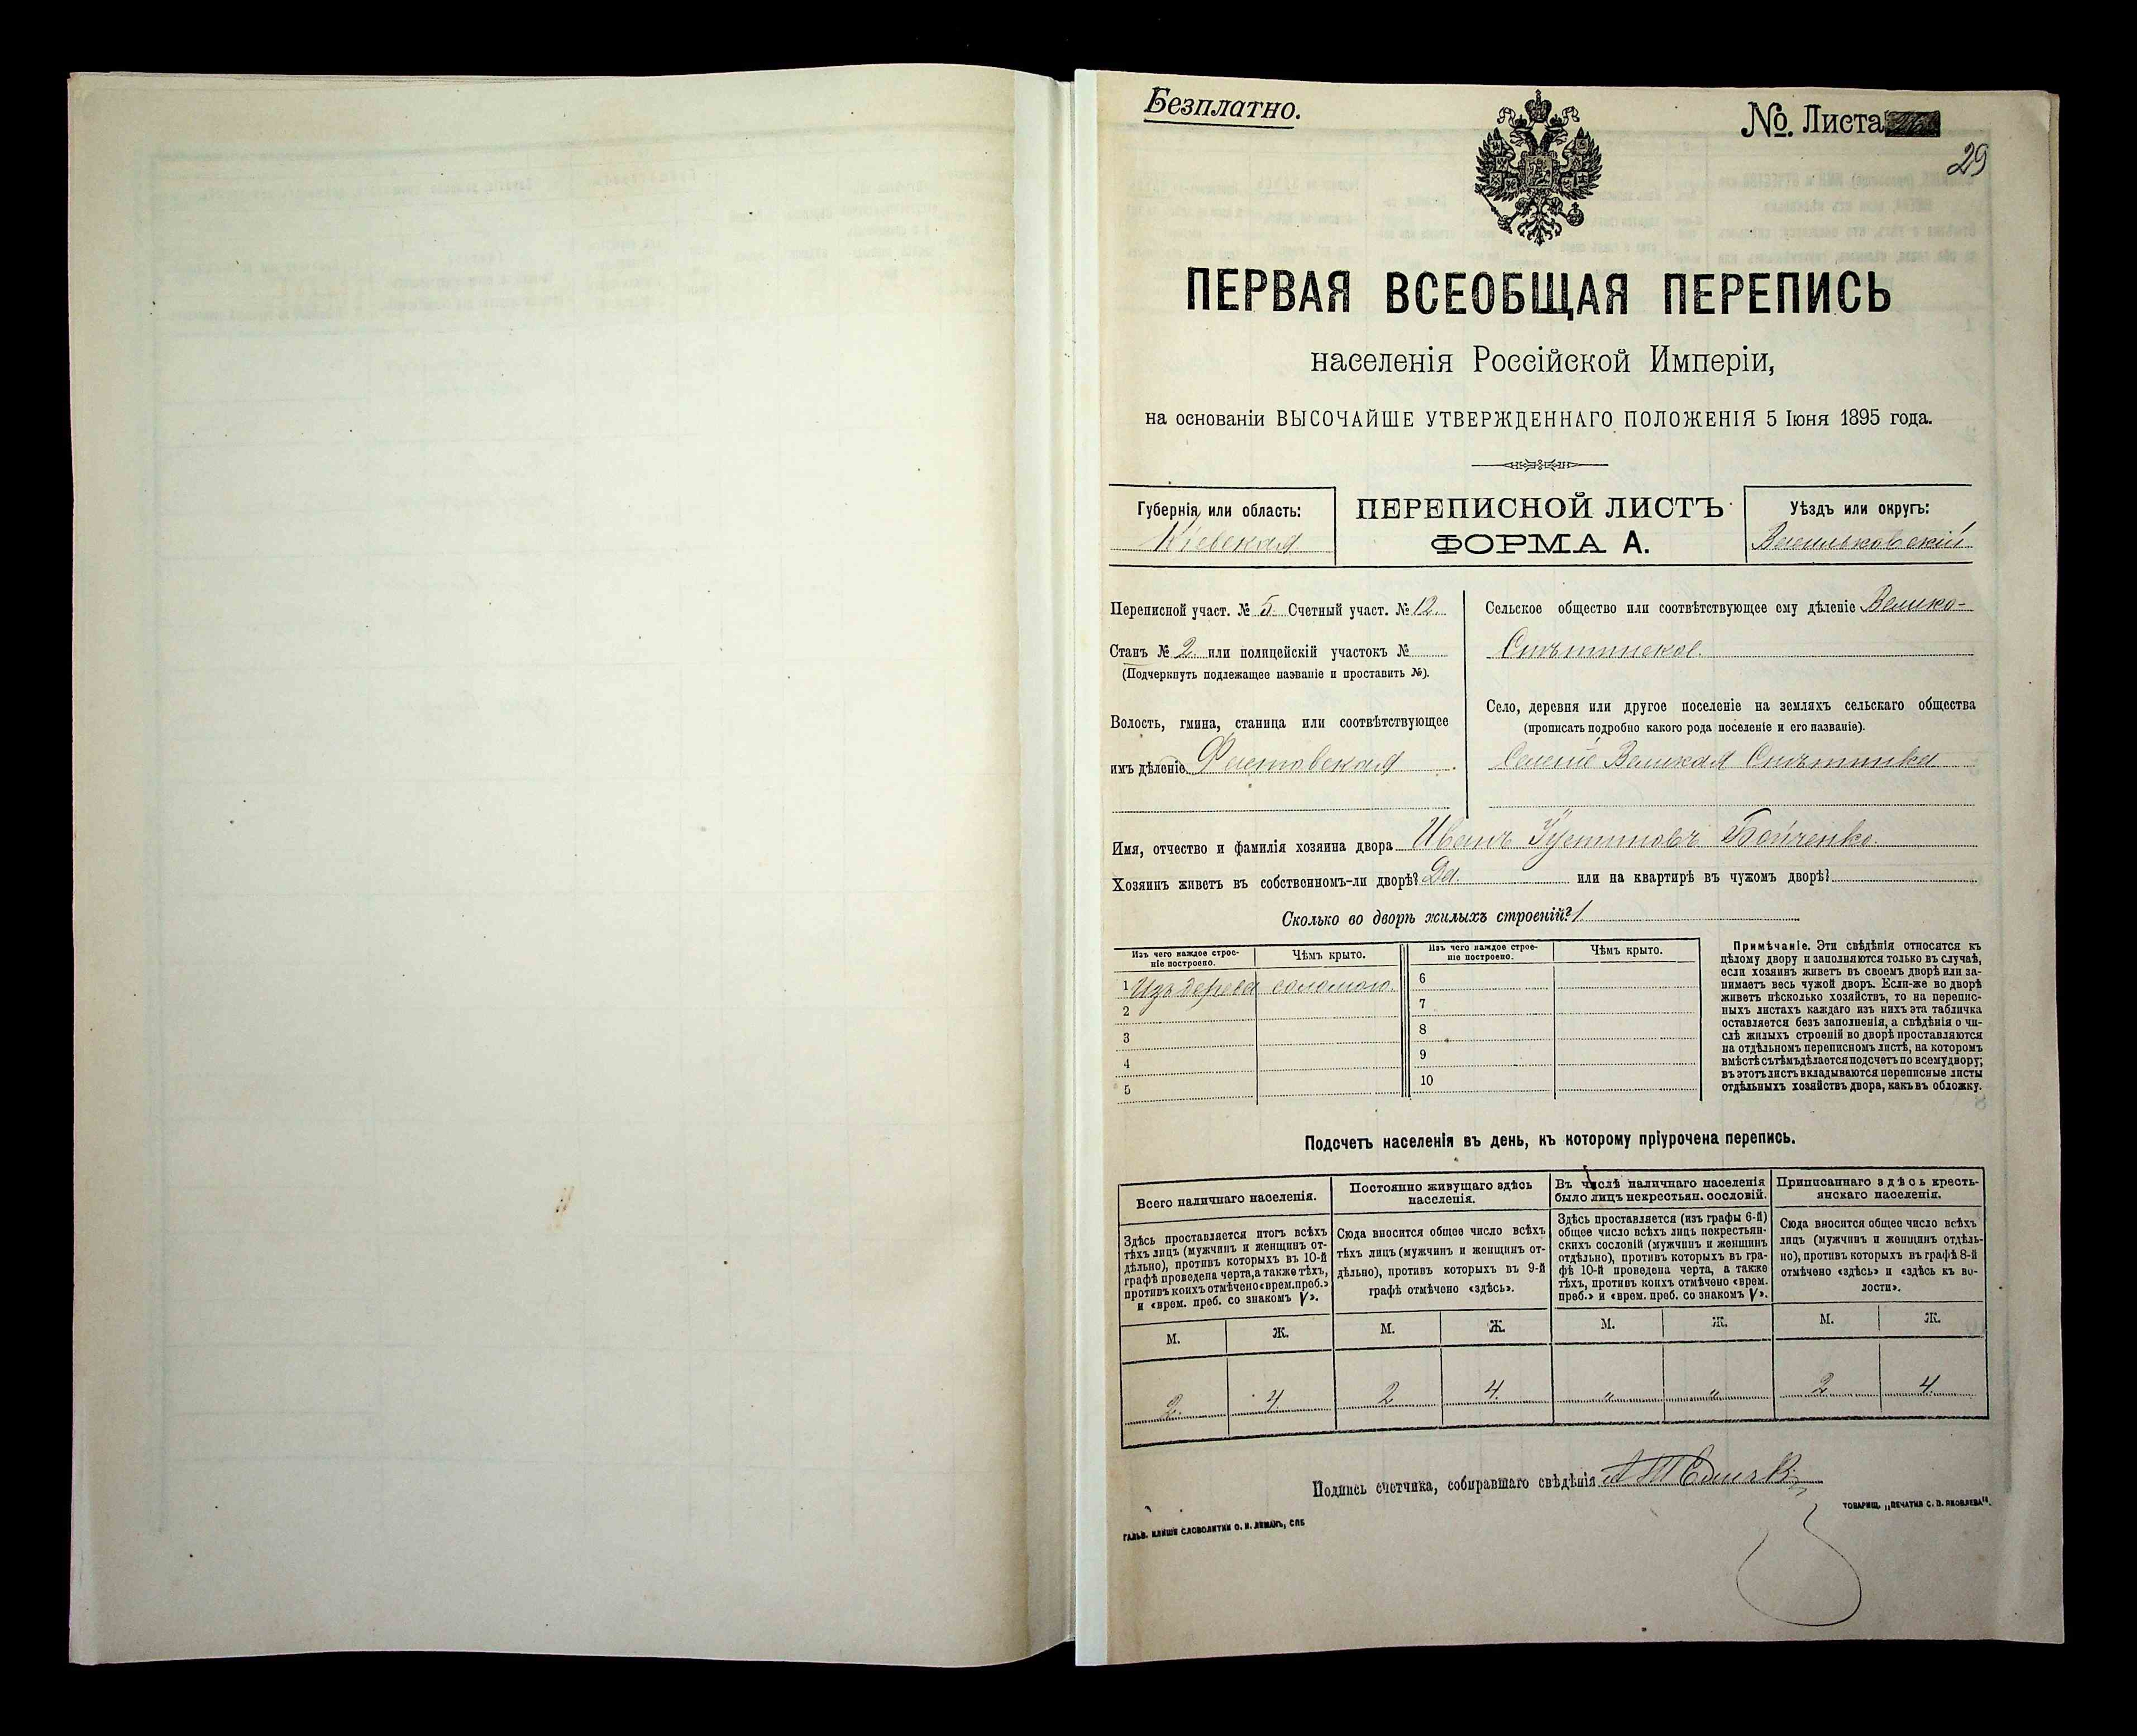 Безплатно.
№. Листа
29
ПЕРВАЯ ВСЕОБЩАЯ ПЕРЕПИСЬ
населенія Россійской Имперіи,
на основаніи ВЫСОЧАЙШЕ УТВЕРЖДЕННАГО ПОЛОЖЕНІЯ 5 Іюня 1895 года.
Губернія или область:
Кіевская
ПЕРЕПИСНОЙ ЛИСТЪ
ФОРМА А.
Уѣздъ или округъ:
Васильковскій
Переписной участ. № 5. Счетный участ. № 12.
Станъ № 2. или полицейскій участокъ №
(Подчеркнуть подлежащее названіе и проставить №).
Волость, гмина, станица или соотвѣтствующее
имъ дѣленіе Фастовская
Сельское общество или соотвѣтствующее ему дѣленіе Велико-
Снѣтинское.
Село, деревня или другое поселеніе на земляхъ сельскаго общества
(прописать подробно какого рода поселеніе и его названіе).
Селеніе Великая Снѣтинка
Имя, отчество и фамилія хозяина двора Иванъ Устиновъ Бойченко.
Хозяинъ живетъ въ собственномъ-ли дворѣ? Да. или на квартирѣ въ чужомъ дворѣ?
Сколько во дворѣ жилыхъ строеній? 1
Изъ чего каждое строе-
ніе построено.
Чѣмъ крыто.
Изъ чего каждое строе-
ніе построено.
Чѣмъ крыто.
1 Изъ дерева соломою.
2
3
4
5
6
7
8
9
10
Примѣчаніе. Эти свѣдѣнія относятся къ
цѣлому двору и заполняются только въ случаѣ,
если хозяинъ живетъ въ своемъ дворѣ или за-
нимаетъ весь чужой дворъ. Если-же во дворѣ
живетъ нѣсколько хозяйствъ, то на перепис-
ныхъ листахъ каждаго изъ нихъ эта табличка
оставляется безъ заполненія, а свѣдѣнія о чи-
слѣ жилыхъ строеній во дворѣ проставляются
на отдѣльномъ переписномъ листѣ, на которомъ
вмѣстѣ съ тѣмъ дѣлается подсчетъ по всему двору;
въ этотъ листъ вкладываются переписные листы
отдѣльныхъ хозяйствъ двора, какъ въ обложку.
Подсчетъ населенія въ день, къ которому пріурочена перепись.
Всего наличнаго населенія.
Здѣсь проставляется итогъ всѣхъ
тѣхъ лицъ (мужчинъ и женщинъ от-
дѣльно), противъ которыхъ въ 10-й
графѣ проведена черта, а также тѣхъ,
противъ коихъ отмѣчено «врем. преб.»
и «врем. преб. со знакомъ V».
Постоянно живущаго здѣсь
населенія.
Сюда вносится общее число всѣхъ
тѣхъ лицъ (мужчинъ и женщинъ от-
дѣльно), противъ которыхъ въ 9-й
графѣ отмѣчено «здѣсь».
Въ числѣ наличнаго населенія
было лицъ некрестьян. сословій.
Здѣсь проставляется (изъ графы 6-й)
общее число всѣхъ лицъ некрестьян-
скихъ сословій (мужчинъ и женщинъ
отдѣльно), противъ которыхъ въ гра-
фѣ 10-й проведена черта, а также
тѣхъ, противъ коихъ отмѣчено «врем.
преб.» и «врем. преб. со знакомъ V».
Приписаннаго здѣсь кресть-
янскаго населенія.
Сюда вносится общее число всѣхъ
лицъ (мужчинъ и женщинъ отдѣль-
но), противъ которыхъ въ графѣ 8-й
отмѣчено «здѣсь» и «здѣсь къ во-
лости».
М. Ж. М. Ж. М. Ж. М. Ж.
2. 4. 2 4. " " 2 4.
Подпись счетчика, собиравшаго свѣдѣнія
ГАЛЬВ. КЛИШЕ СЛОВОЛИТНИ О. И. ЛЕМАНЪ, СПБ
ТОВАРИЩ. „ПЕЧАТНЯ С. П. ЯКОВЛЕВА".